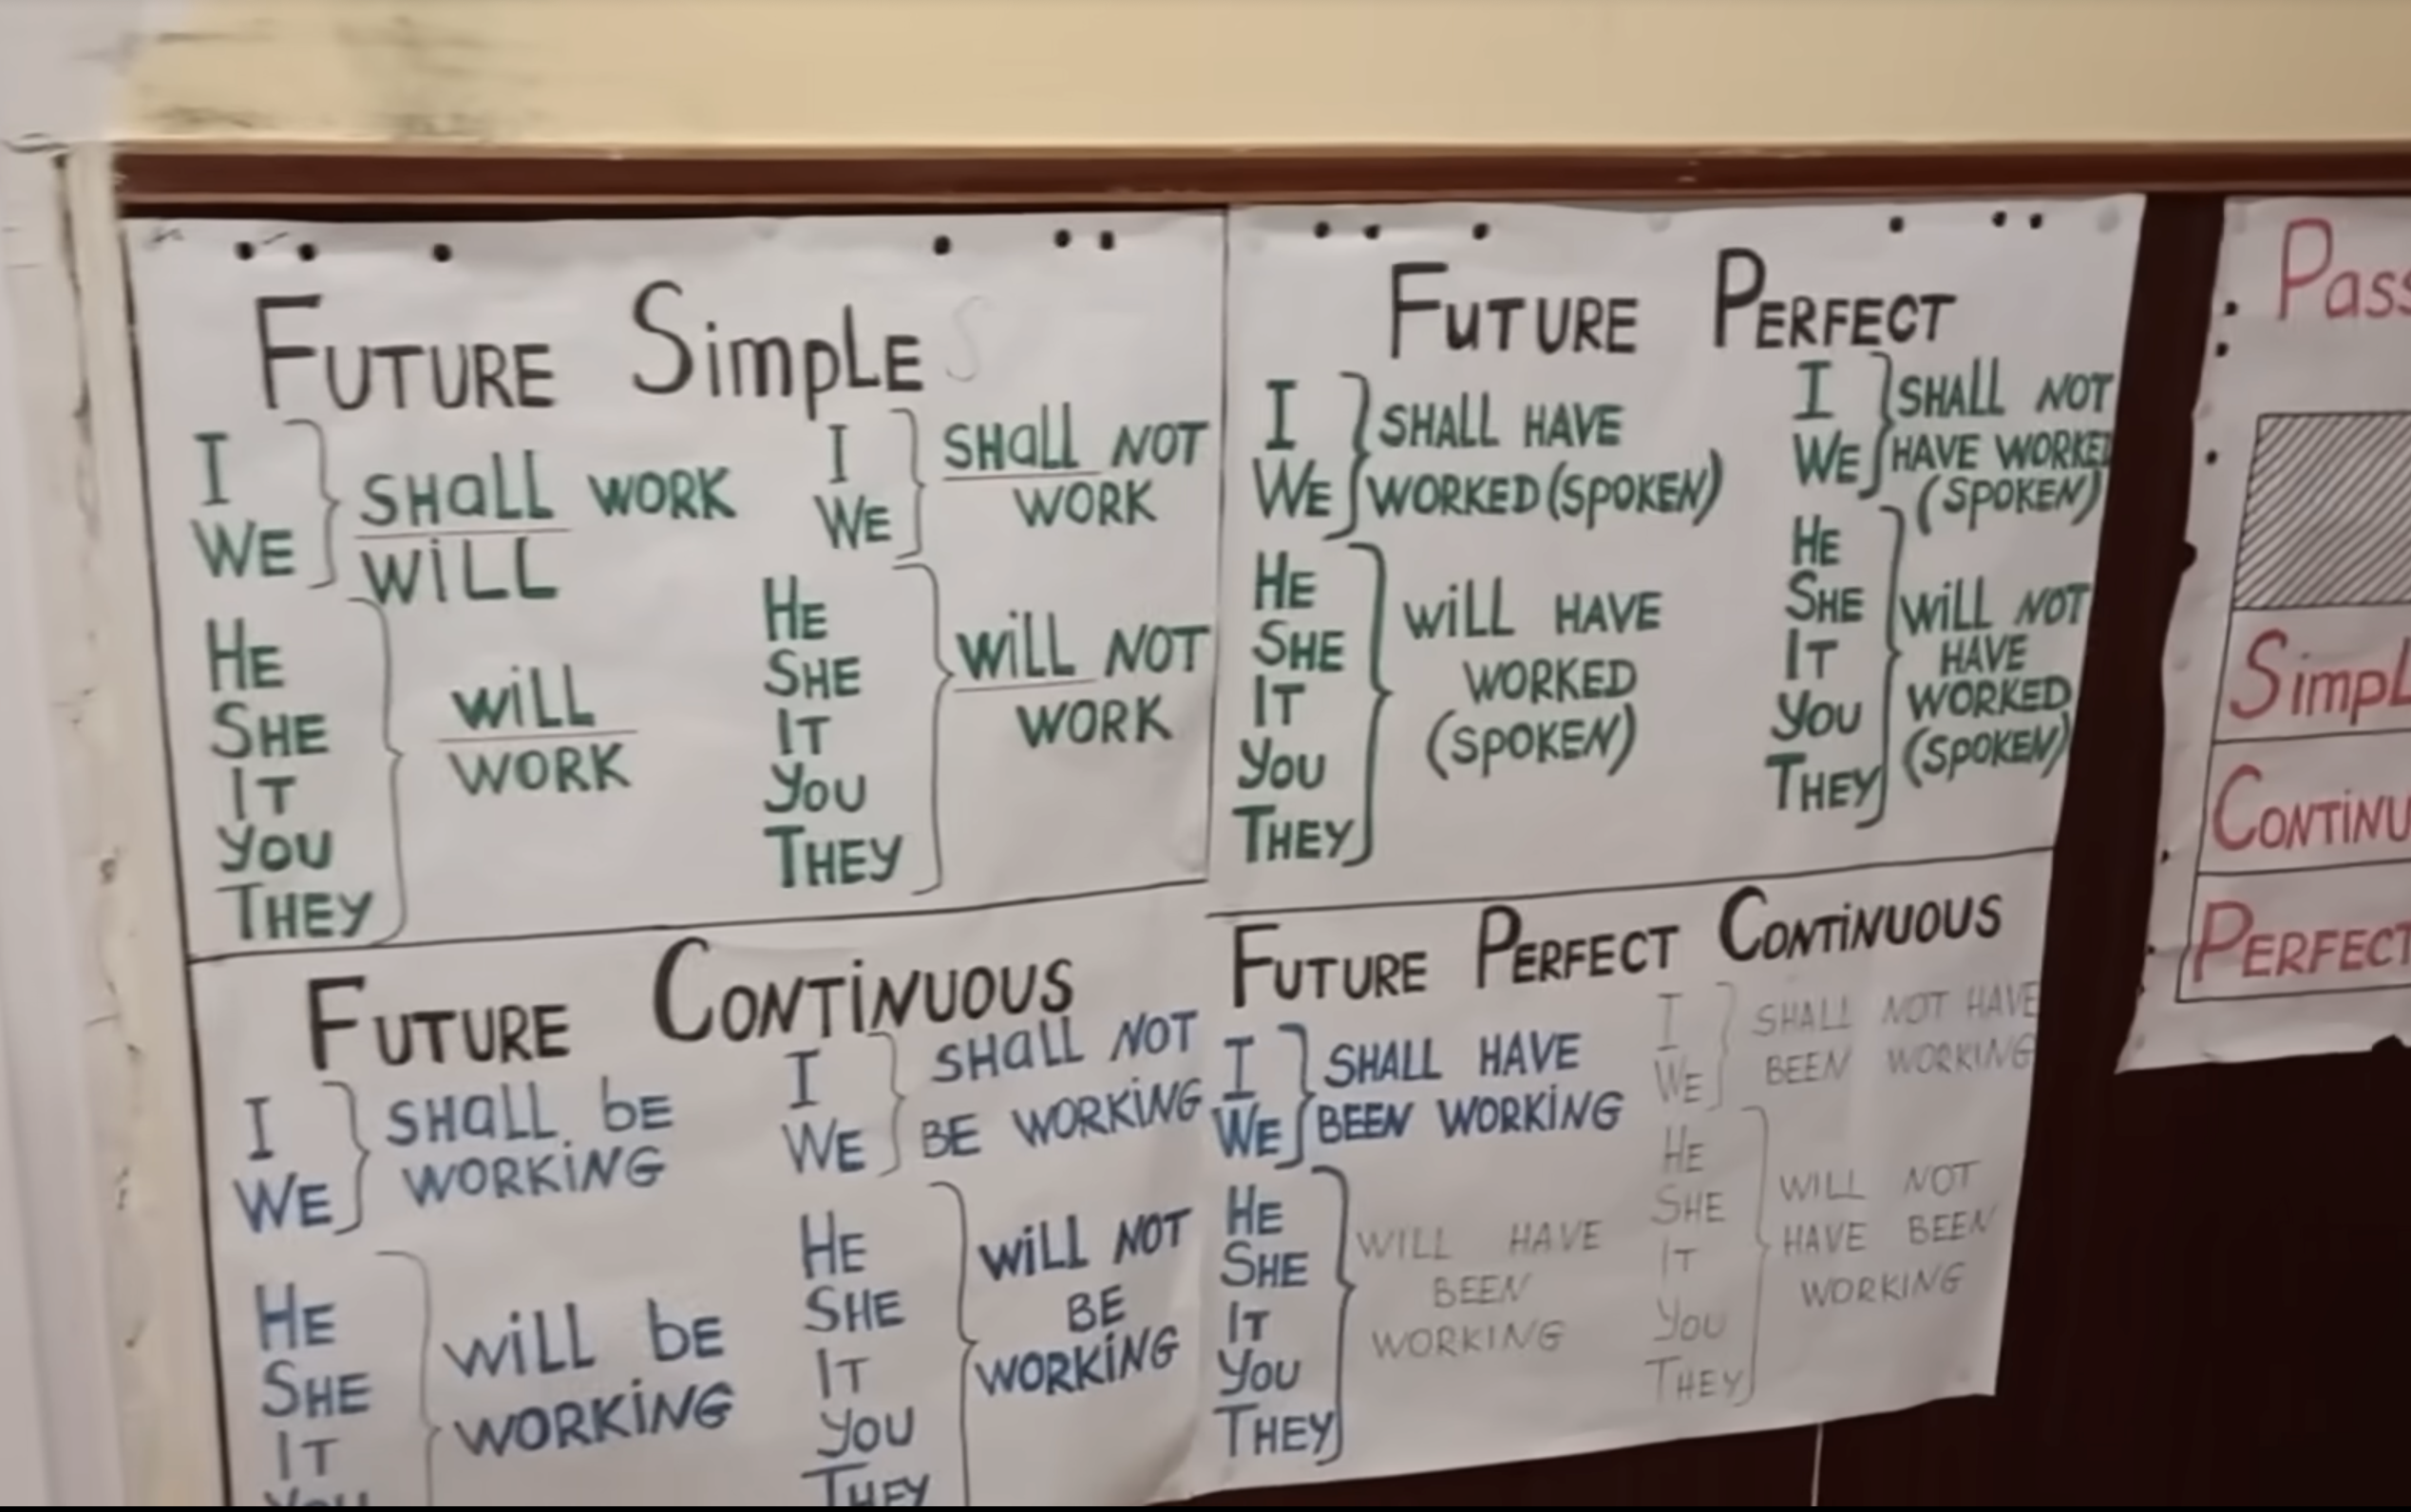 FUTURE SimpLE
I
WE
SHaLL WORK
WiLL
HE
SHE
IT
YOU
THEY
WiLL
WORK
I
WE
SHaLL NOT
WORK
HE
SHE
IT
YOU
THEY
WiLL NOT
WORK
FUTURE PERFECT
I
WE
SHALL HAVE
WORKED (SPOKEN)
HE
SHE
IT
YOU
THEY
WiLL HAVE
WORKED
(SPOKEN)
I
WE
SHALL NOT
HAVE WORKED
(SPOKEN)
HE
SHE
IT
YOU
THEY
WiLL NOT
HAVE
WORKED
(SPOKEN)
FUTURE CONTiNUOUS
I
WE
SHaLL bE
WORKiNG
HE
SHE
IT
YOU
WiLL bE
WORKiNG
I
WE
SHaLL NOT
BE WORKiNG
HE
SHE
IT
YOU
THEY
WiLL NOT
BE
WORKiNG
FUTURE PERFECT CONTiNUOUS
I
WE
SHALL HAVE
BEEN WORKiNG
HE
SHE
IT
YOU
THEY
WILL HAVE
BEEN
WORKING
I
WE
SHALL NOT HAVE
BEEN WORKING
HE
SHE
IT
YOU
THEY
WILL NOT
HAVE BEEN
WORKING
Pass
SimpL
CONTiNU
PERFECT